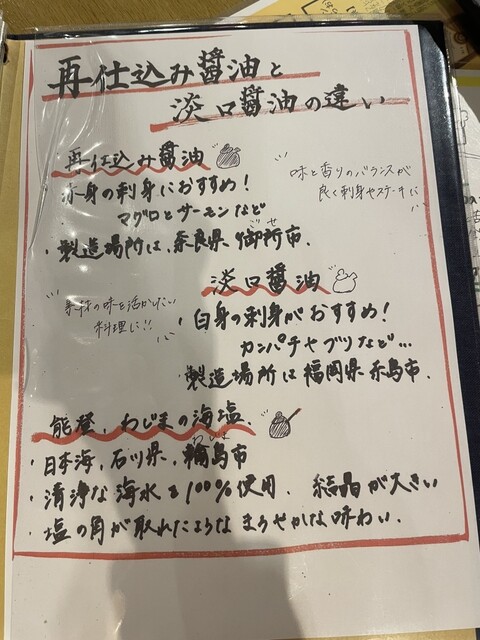 再仕込み醤油と
淡口醤油の違い
再仕込み醤油
赤身の刺身におすすめ!
マグロとサーモンなど
・製造場所は、奈良県 御所市.
ごせ
味と香りのバランスが
良く刺身やステーキに
淡口醤油
素材の味を活かしたい
料理に!!
・白身の刺身がおすすめ!
カンパチやブリなど…
・製造場所は福岡県 糸島市.
能登、わじまの海塩
・日本海、石川県、輪島市
わじま
・清浄な海水を100%使用、結晶が大きい
・塩の角が取れたような まろやかな味わい.